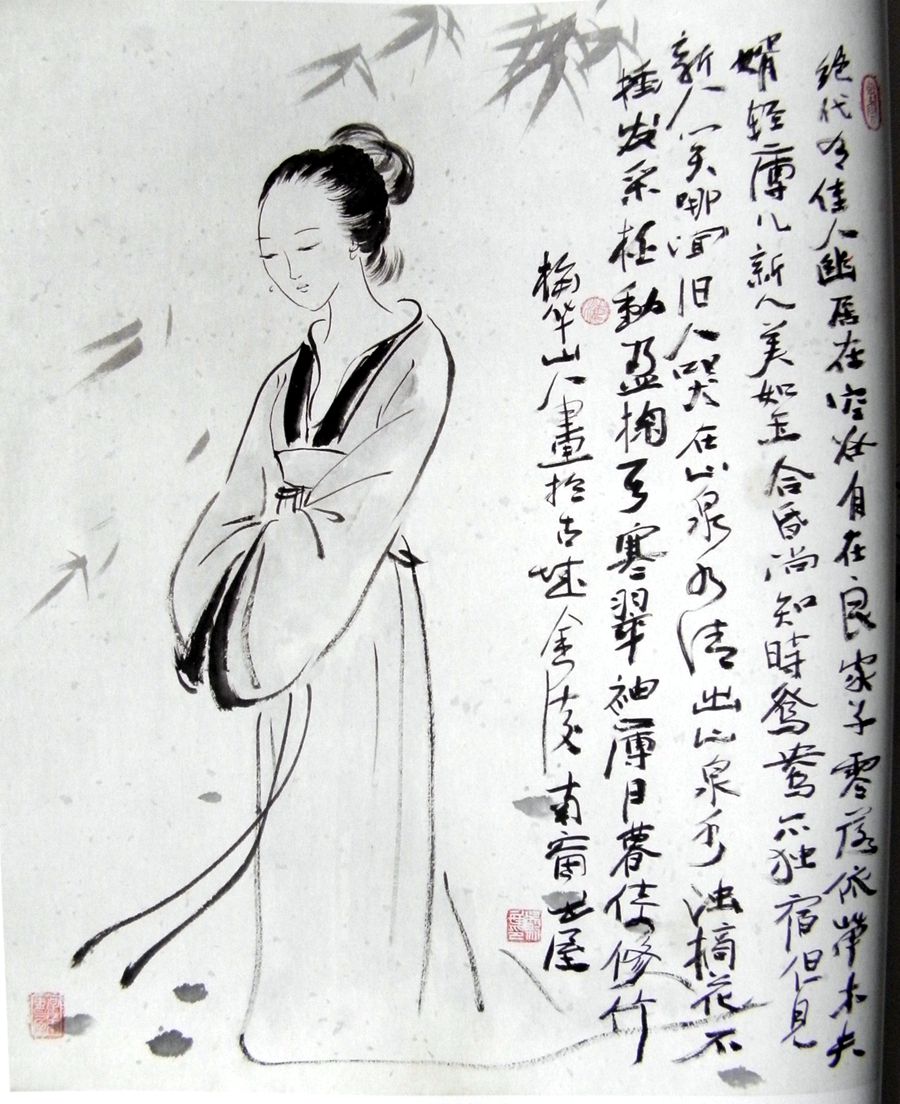 绝代有佳人幽居在空谷自在良家子零落依草木夫
婿轻薄儿新人美如玉合昏尚知時鸳鸯不独宿但見
新人笑哪闻旧人哭在山泉水清出山泉水浊摘花不
插发采柏動盈掬天寒翠袖薄日暮倚修竹
梅华山人畫於古城金陵南窗书屋